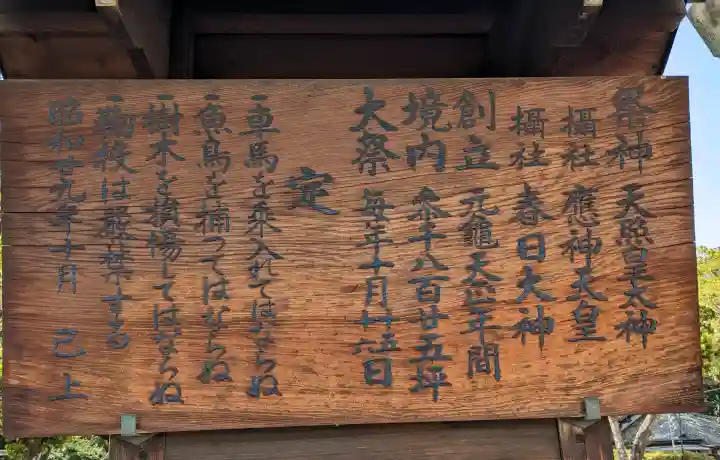 祭神 天照皇大神
攝社 應神天皇
攝社 春日大神
創立 元龜天正年間
境内 参千八百廿五坪
大祭 毎年十月廿五日
定
一車馬を乗入れてはならぬ
一魚鳥を捕つてはならぬ
一樹木を損傷してはならぬ
一物は嚴禁する
昭和廿九年十月 已上